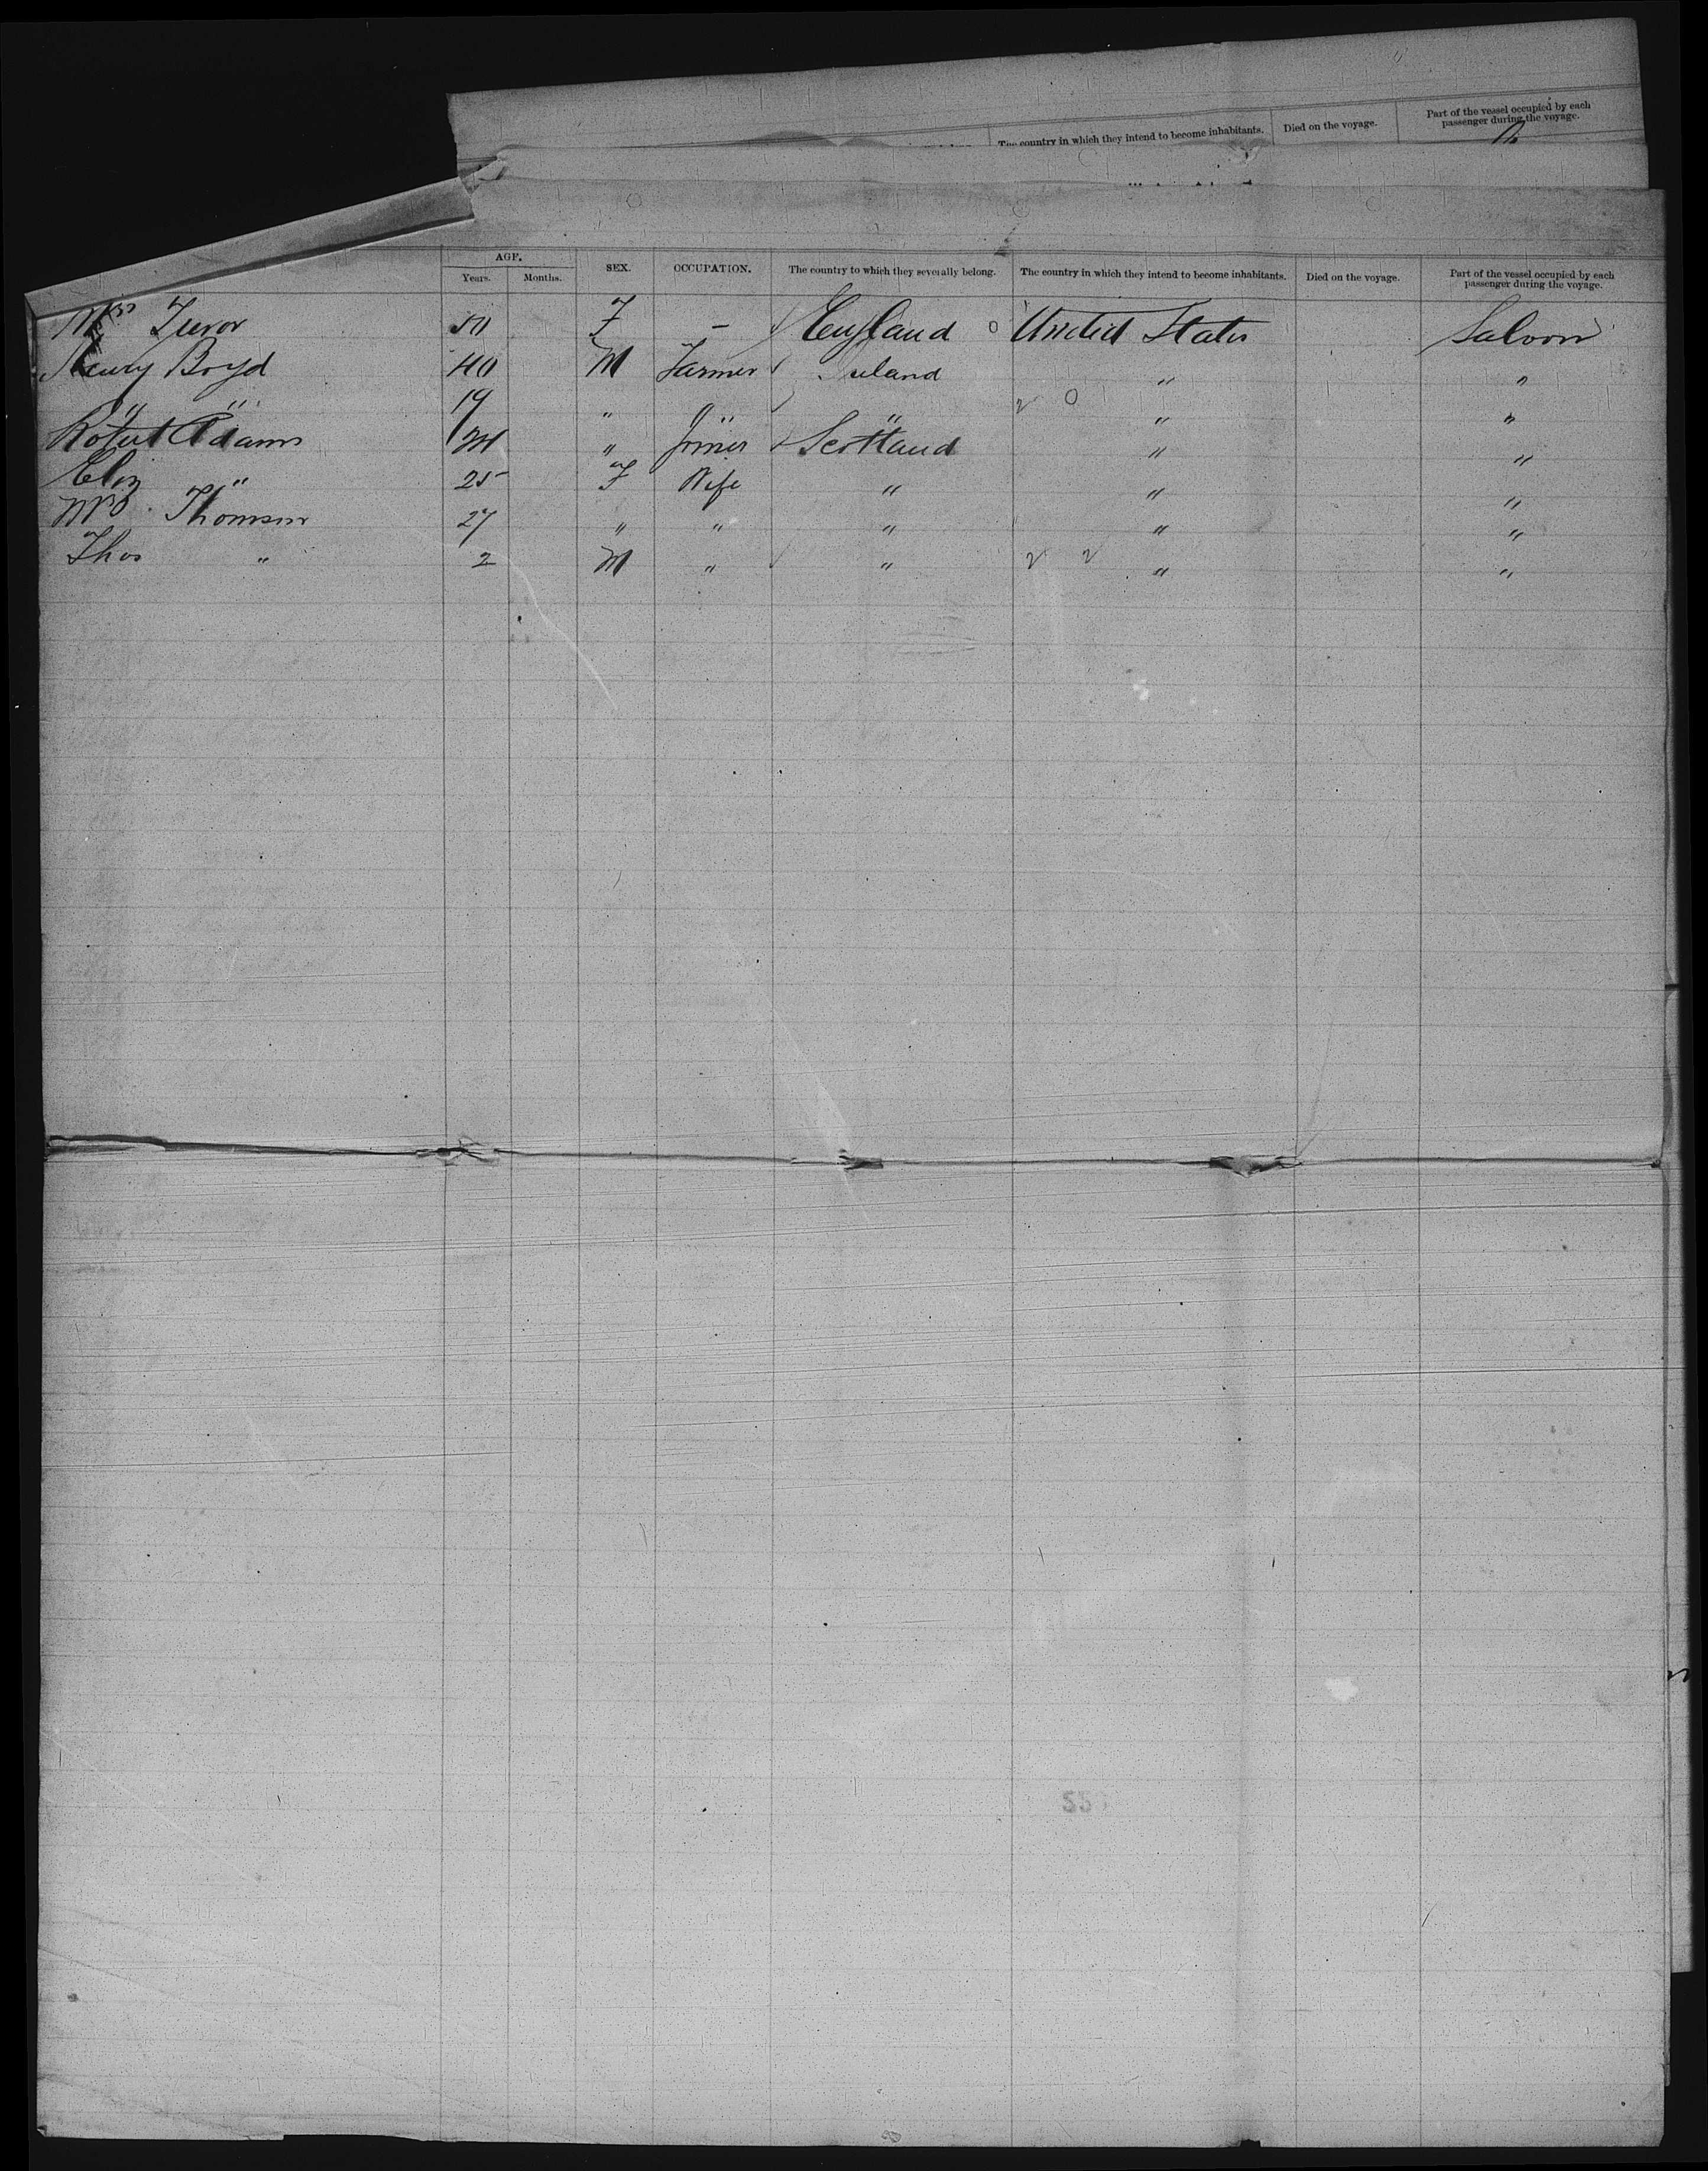 Part of the vessel occupied by each
passenger during the voyage.
country in which they intend to become inhabitants. Died on the voyage.
AGE.
Years. Months. SEX. OCCUPATION. The country to which they severally belong. The country in which they intend to become inhabitants. Died on the voyage. Part of the vessel occupied by each
passenger during the voyage.
Mrs 50 F - England United States Saloon
Henry Boyd 40 M Farmer Ireland " "
" " 19 " " " " "
Robert Adams Joiner Scotland " "
Eliz " 25 F Wife " " "
Mrs Thomson 27 " " " " "
Thos " 2 M " " " "